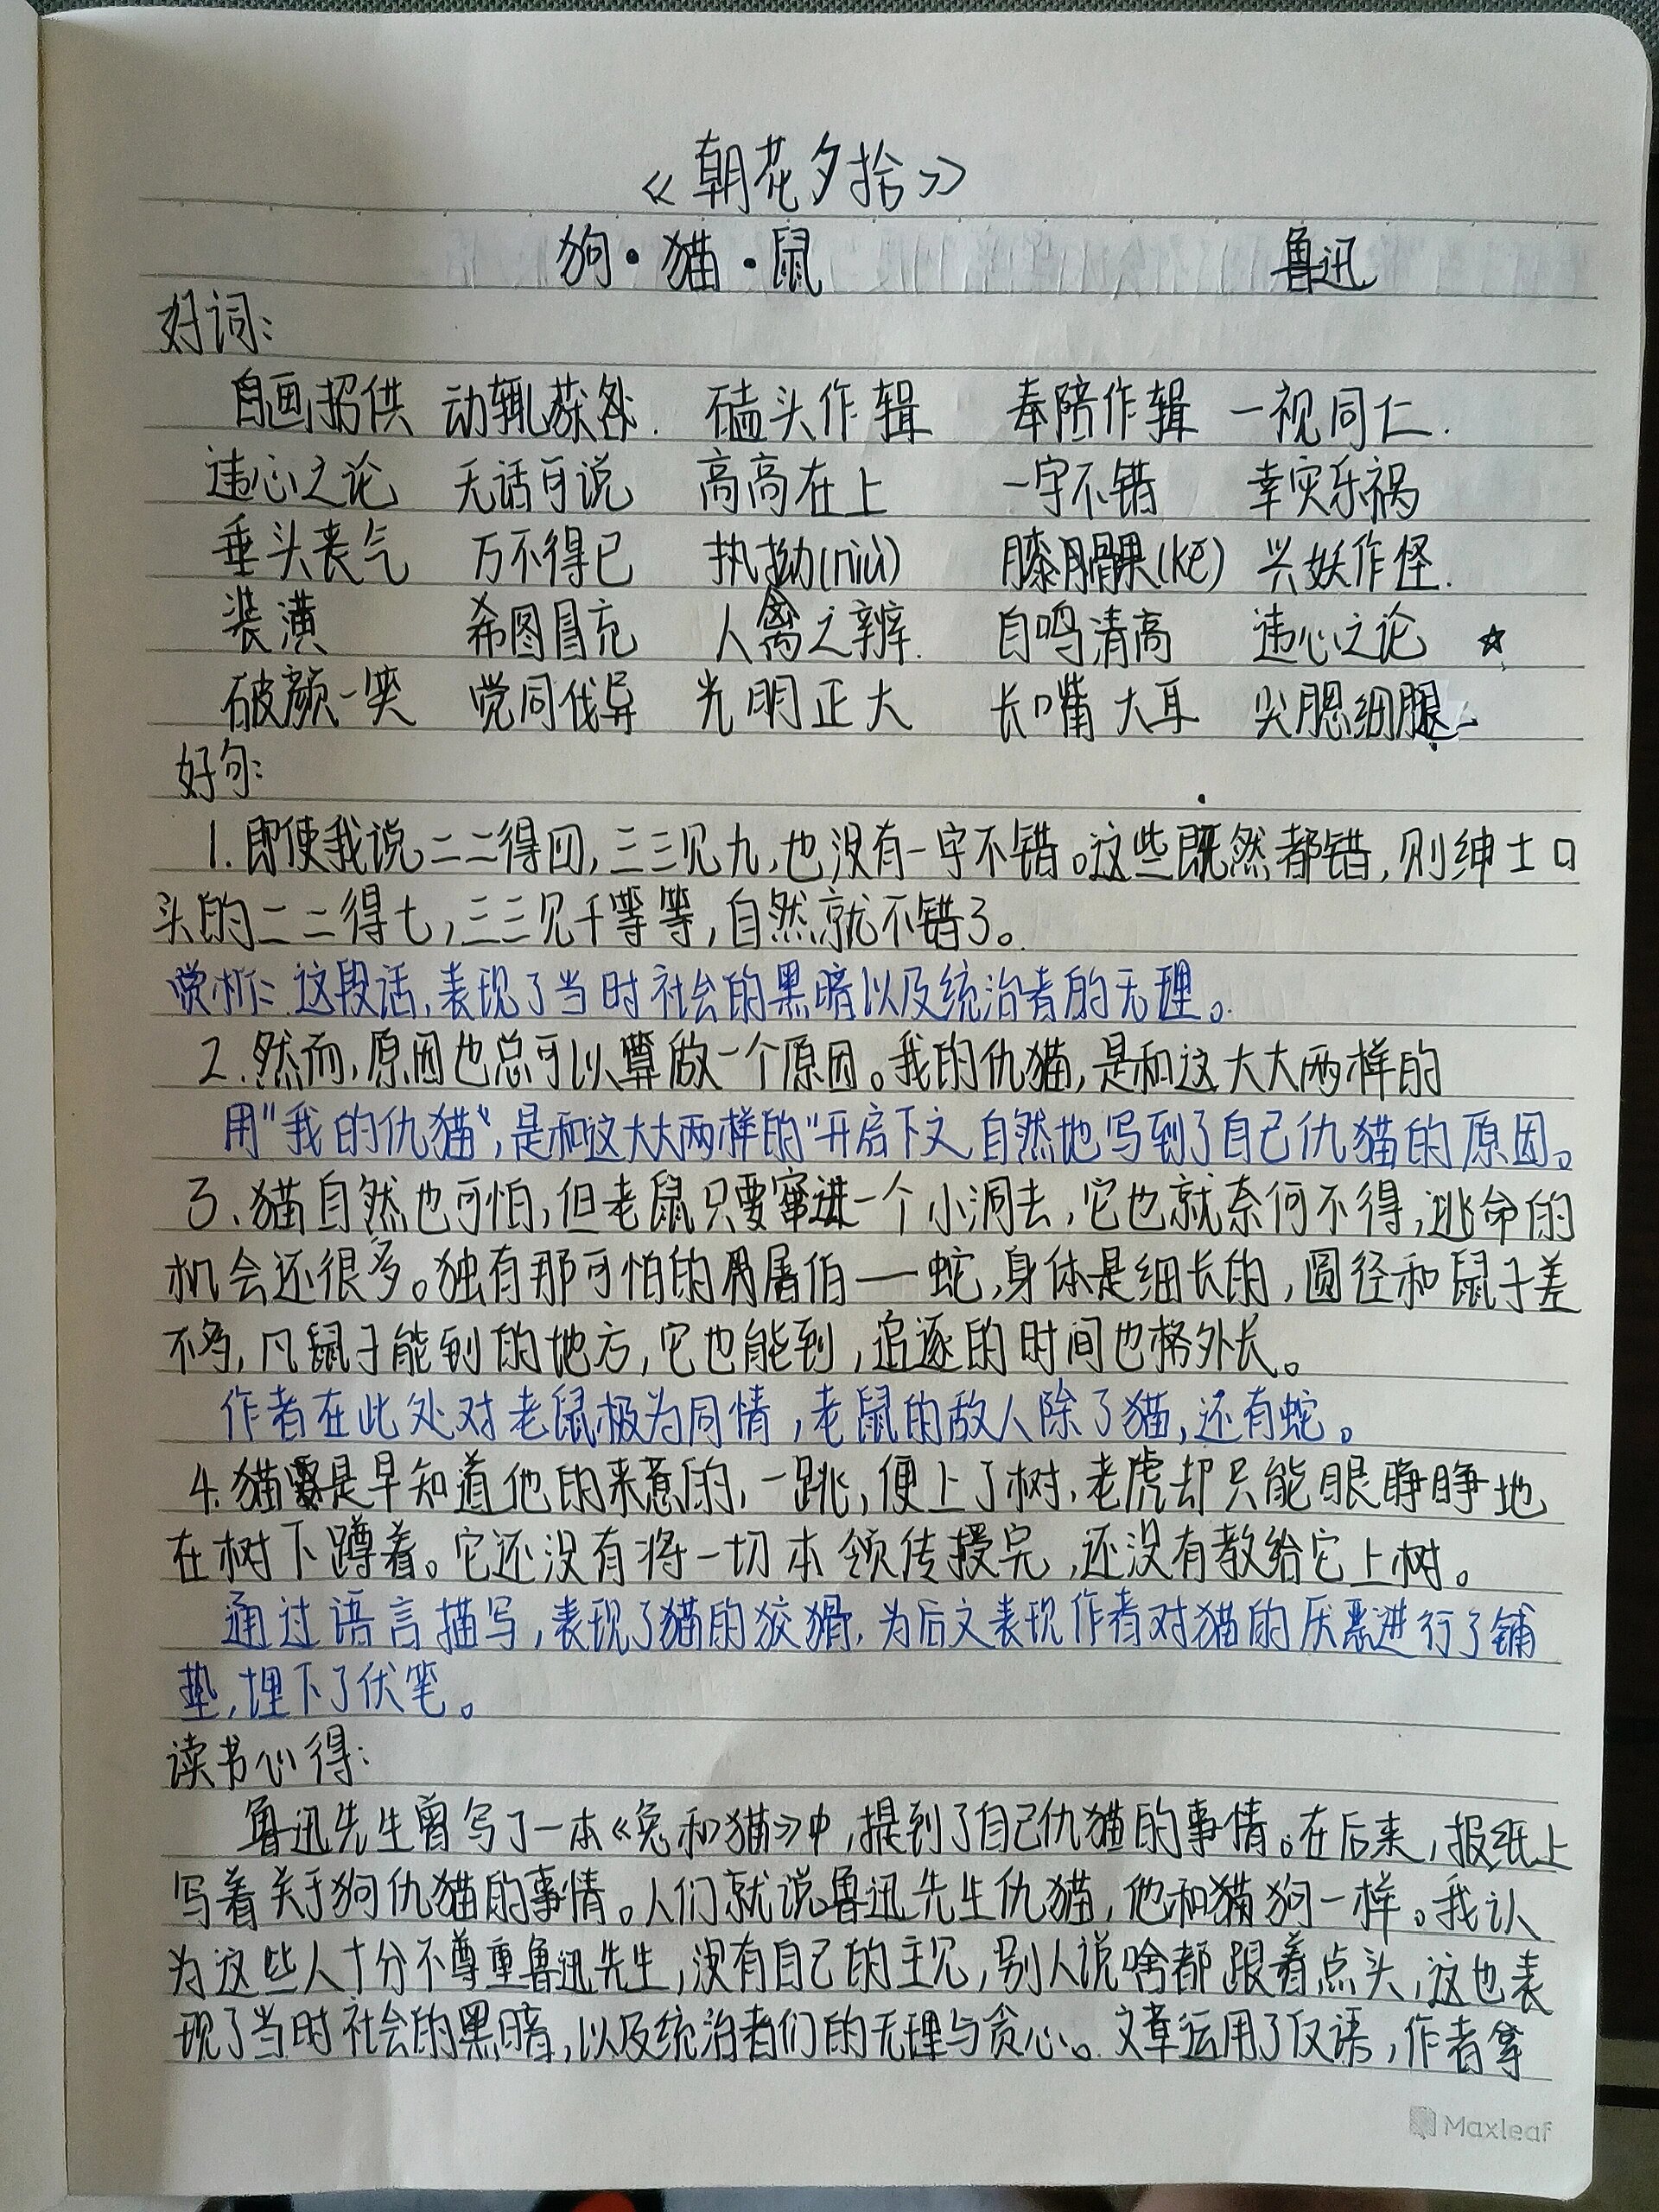 《朝花夕拾》
狗·猫·鼠 鲁迅
好词:
自画招供 动辄获咎. 磕头作辑 奉陪作辑 一视同仁.
违心之论 无话可说 高高在上 一字不错 幸灾乐祸
垂头丧气 万不得已 执拗(niù) 膝髁(kē) 兴妖作怪.
装潢 希图冒充 人禽之辨. 自鸣清高 违心之论 ☆
破颜一笑 党同伐异 光明正大 长嘴大耳 尖腮细腿
好句:
1.即使我说二二得四,三三见九,也没有一字不错。这些既然都错,则绅士口
头的二二得七,三三见千等等,自然就不错了。
赏析:这段话,表现了当时社会的黑暗以及统治者的无理。
2.然而,原因也总可以算做一个原因。我的仇猫,是和这大大两样的
用"我的仇猫",是和这大大两样的"开启下文,自然地写到了自己仇猫的原因。
3、猫自然也可怕,但老鼠只要窜进一个小洞去,它也就奈何不得,逃命的
机会还很多。独有那可怕的屠伯——蛇,身体是细长的,圆径和鼠子差
不多,凡鼠子能到的地方,它也能到,追逐的时间也格外长。
作者在此处对老鼠极为同情,老鼠的敌人除了猫,还有蛇。
4.猫是早知道他的来意的,一跳,便上了树,老虎却只能眼睁睁地
在树下蹲着。它还没有将一切本领传授完,还没有教给它上树。
通过语言描写,表现了猫的狡猾,为后文表现作者对猫的厌恶进行了铺
垫,埋下了伏笔。
读书心得:
鲁迅先生曾写了一本《兔和猫》中,提到了自己仇猫的事情。在后来,报纸上
写着关于狗仇猫的事情。人们就说鲁迅先生仇猫,他和猫狗一样。我认
为这些人十分不尊重鲁迅先生,没有自己的主见,别人说啥都跟着点头,这也表
现了当时社会的黑暗,以及统治者们的无理与贪心。文章运用了反语,作者拿
Maxleaf